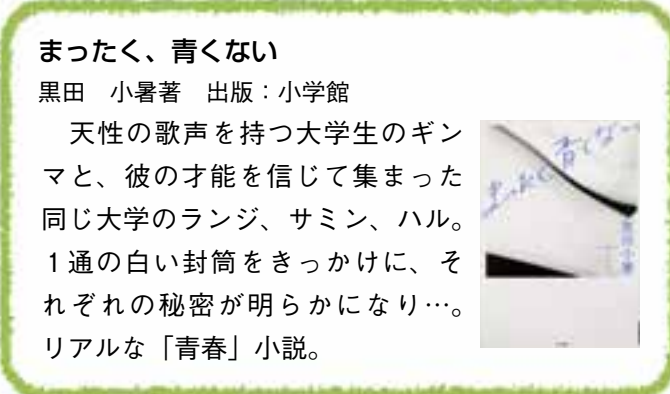 まったく、青くない
黒田　小暑著　出版：小学館
　天性の歌声を持つ大学生のギン
マと、彼の才能を信じて集まった
同じ大学のランジ、サミン、ハル。
１通の白い封筒をきっかけに、そ
れぞれの秘密が明らかになり…。
リアルな「青春」小説。
まったく青くない
黒田小暑